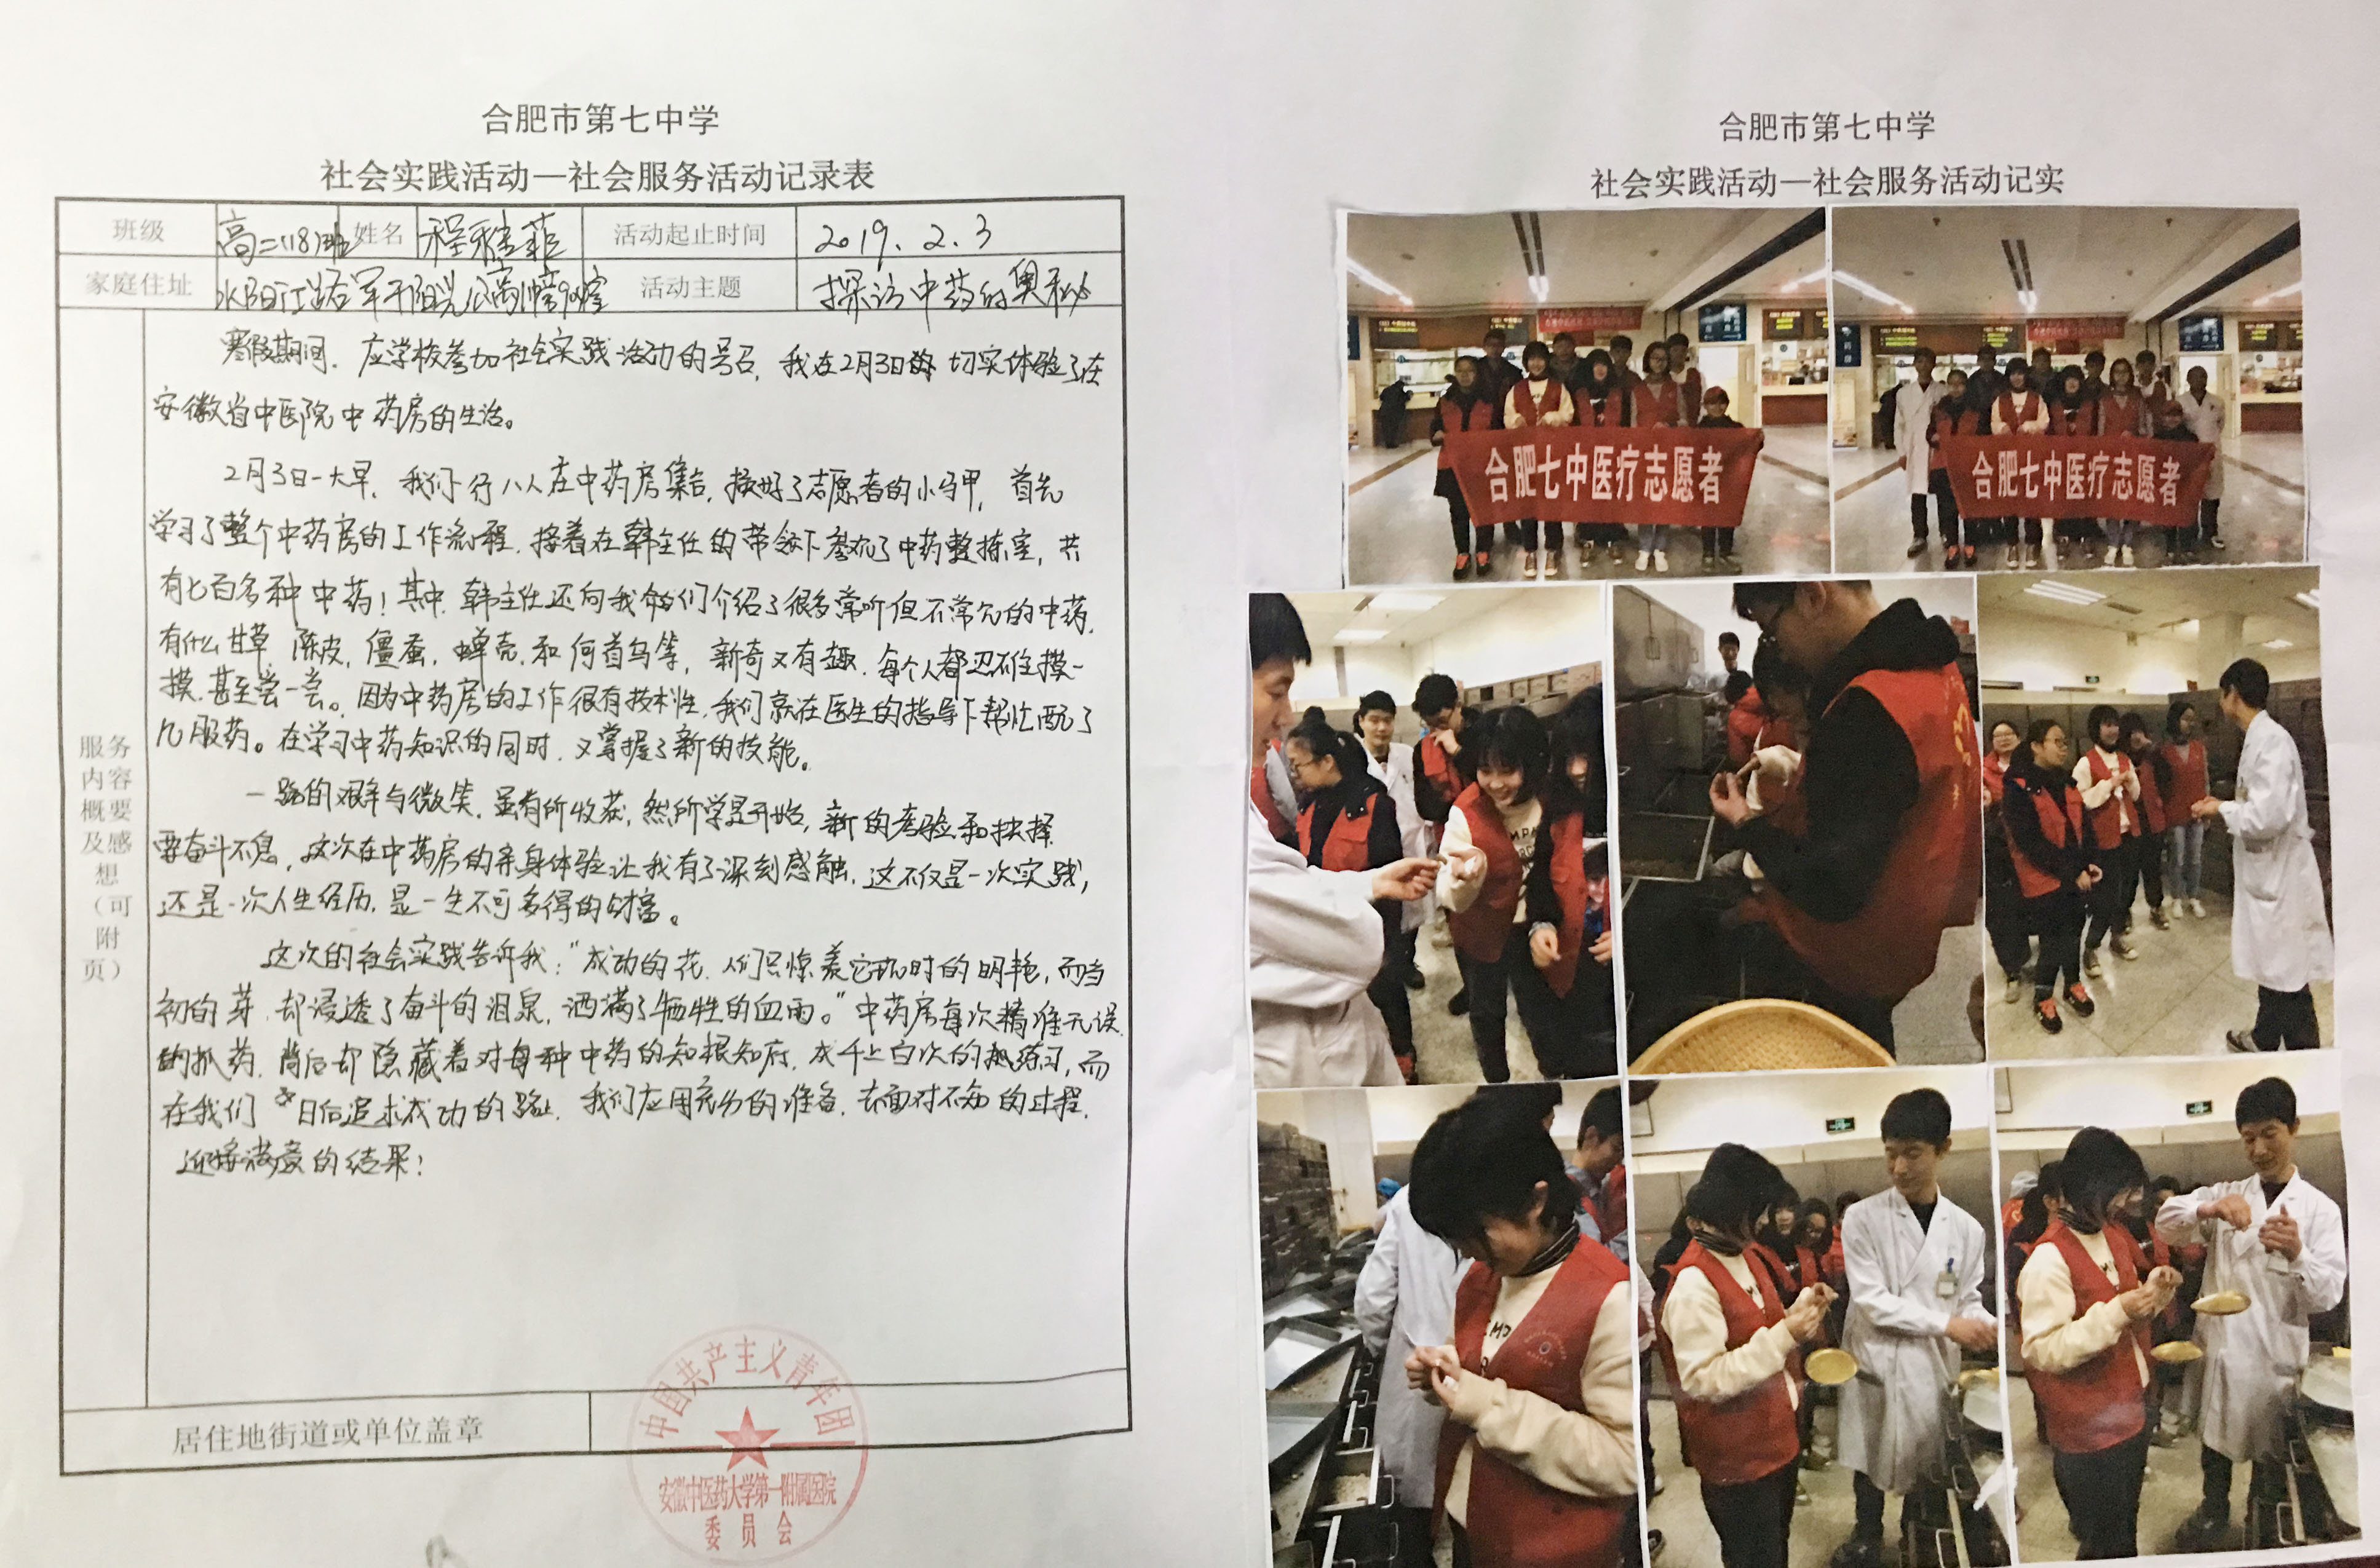 合肥市第七中学
社会实践活动—社会服务活动记录表
班级 高二(18)班 姓名 程雅菲 活动起止时间 2019.2.3
家庭住址 活动主题 探访中药的奥秘
服务内容概要及感想（可附页）
寒假期间，应学校参加社会实践活动的号召，我在2月3日 切实体验了在
安徽省中医院中药房的生活。
2月3日一大早，我们一行八人在中药房集合，换好了志愿者的小马甲，首先
学习了整个中药房的工作流程，接着在韩主任的带领下参观了中药整拣室，共
有七百多种中药！其中，韩主任还向我们介绍了很多常听但不常见的中药，
有什么甘草，陈皮，僵蚕，蝉壳，和何首乌等，新奇又有趣，每个人都忍不住摸一
摸，甚至尝一尝。因为中药房的工作很有技术性，我们就在医生的指导下帮忙配了
几服药。在学习中药知识的同时，又掌握了新的技能。
一路的艰辛与微笑，虽有所收获，然所学是开始，新的考验和抉择
要奋斗不息，这次在中药房的亲身体验让我有了深刻感触，这不仅是一次实践，
还是一次人生经历，是一生不可多得的财富。
这次的社会实践告诉我：“成功的花，人们只惊羡它现时的明艳，而当
初的芽，却浸透了奋斗的泪泉，洒满了牺牲的血雨。”中药房每次精准无误
的抓药，背后却隐藏着对每种中药的知根知底，成千上百次的练习，而
在我们日后追求成功的路上，我们应用充分的准备，去面对不知的过程，
迎接满意的结果！
居住地街道或单位盖章
中国共产主义青年团
安徽中医药大学第一附属医院
委员会
合肥市第七中学
社会实践活动—社会服务活动记实
合肥七中医疗志愿者
合肥七中医疗志愿者